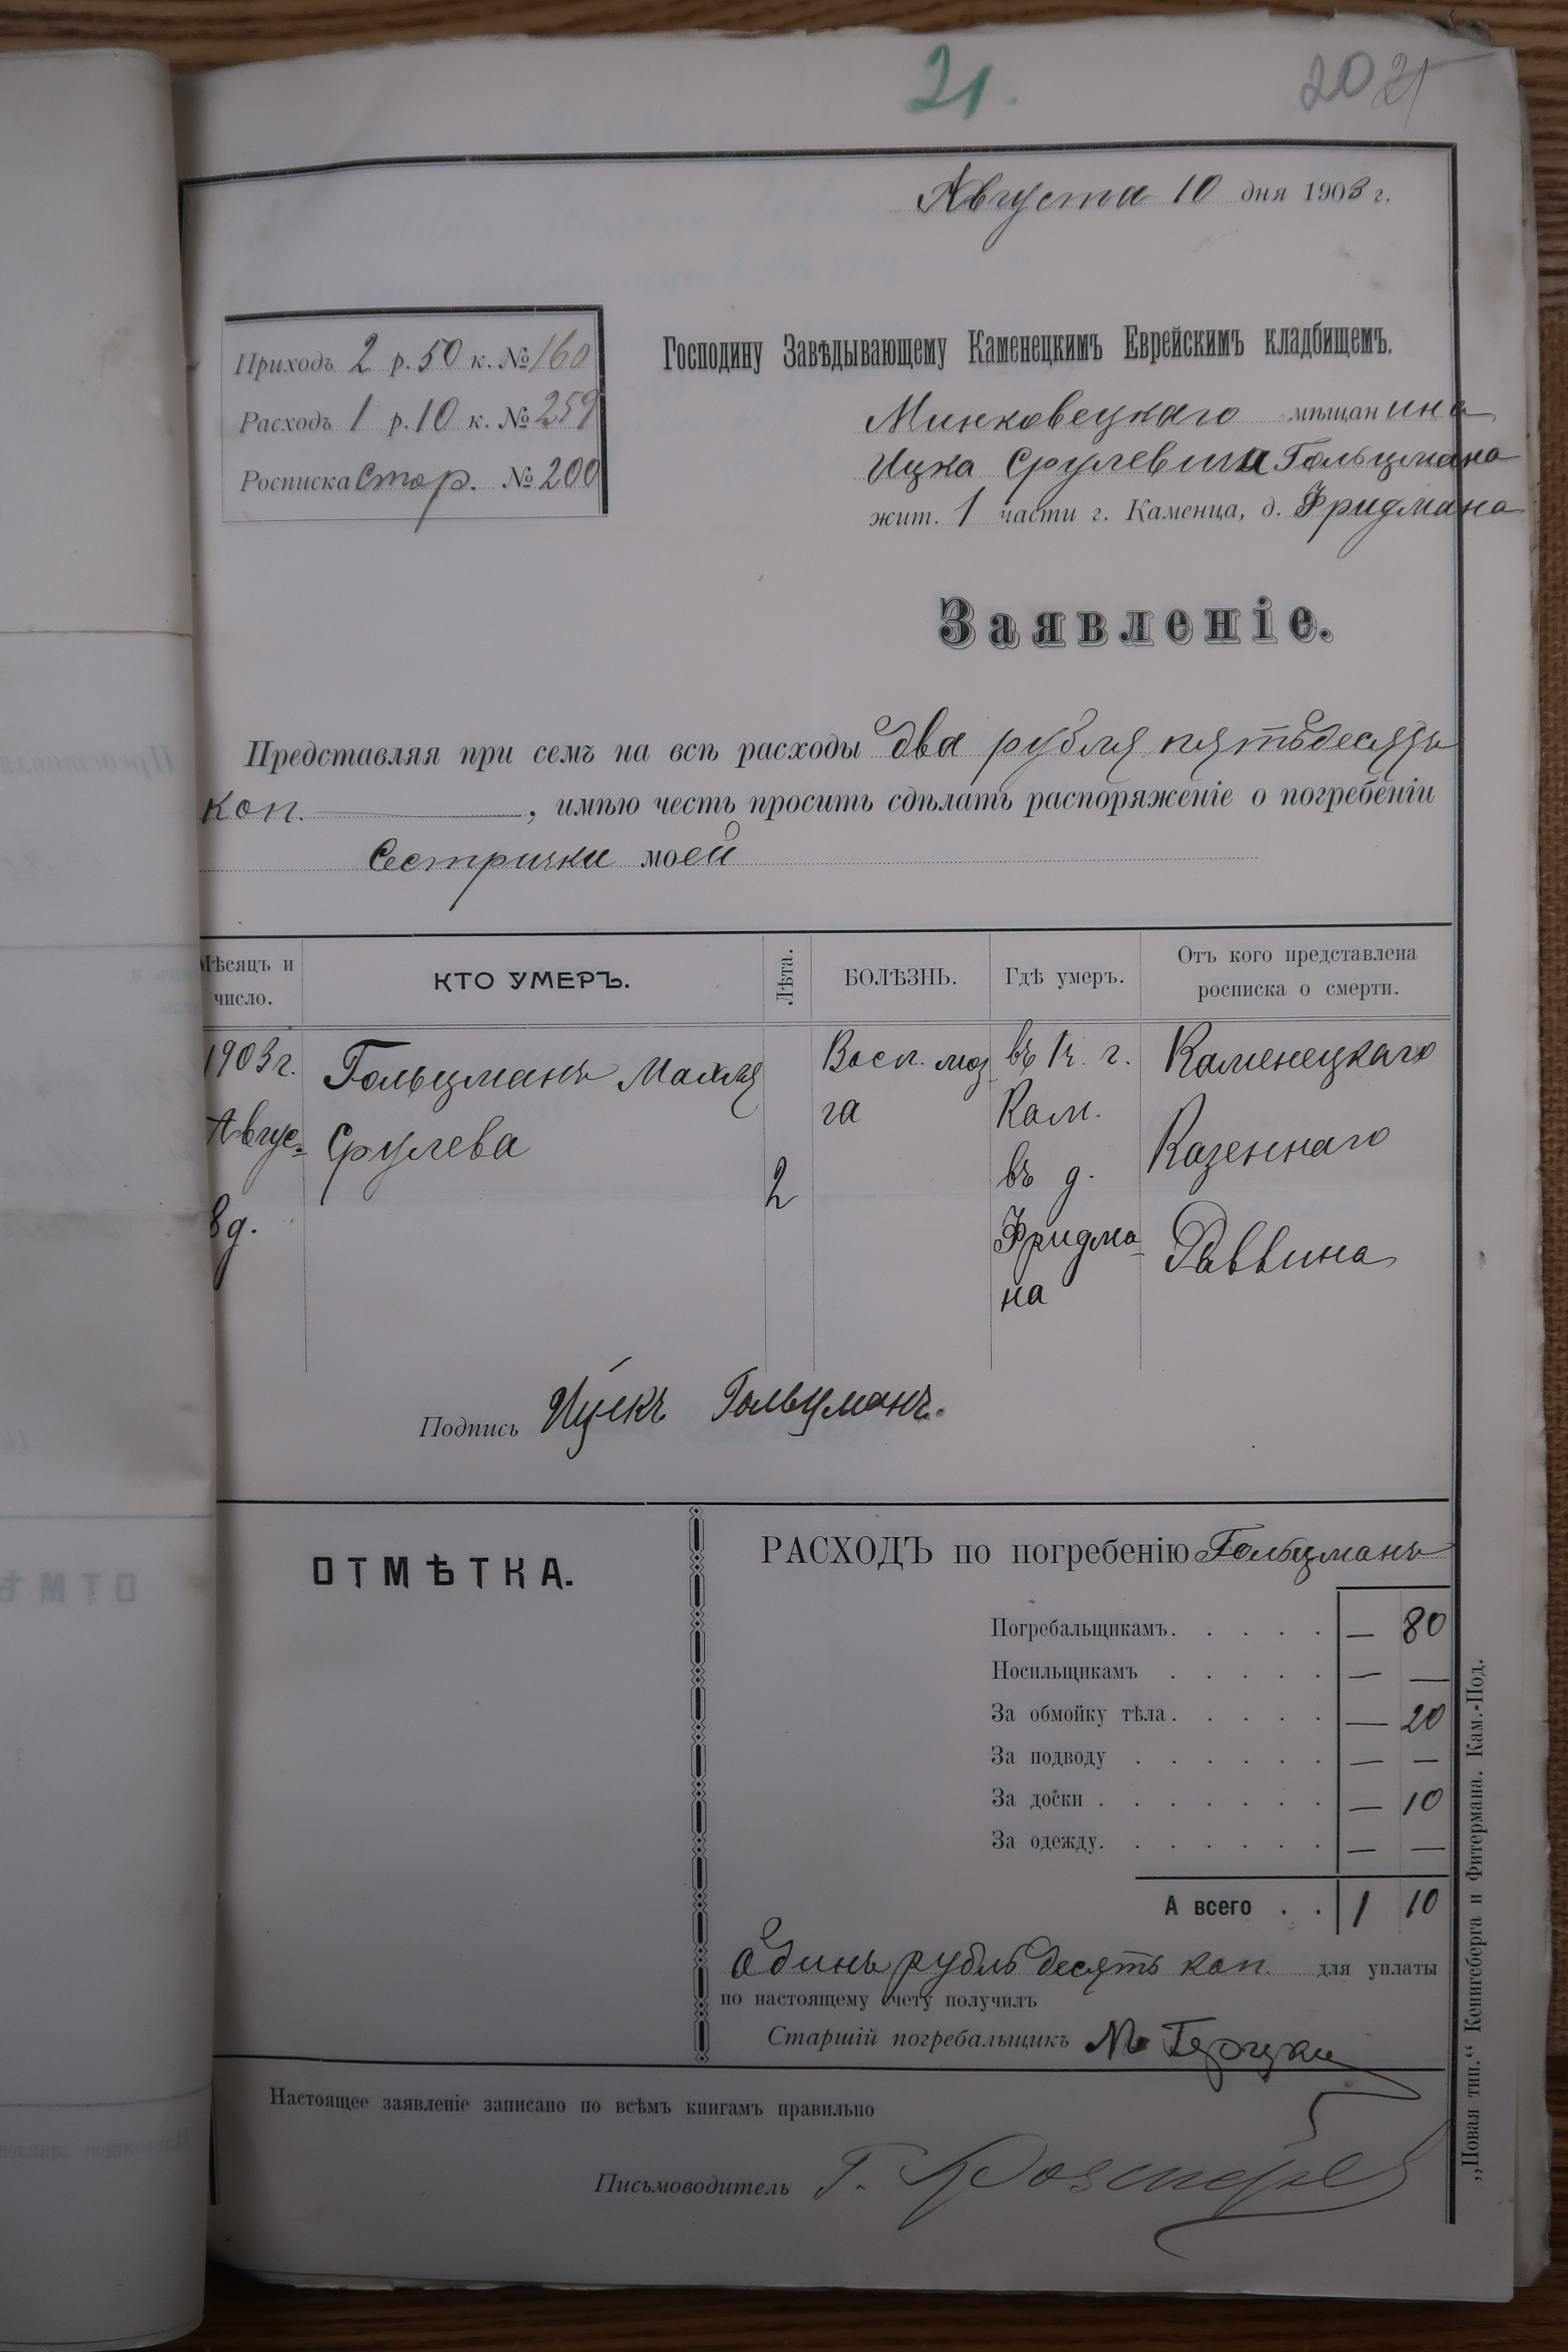 21.
20 21
Августа 10 дня 1903 г.
Приходъ 2 р. 50 к. № 160
Расходъ 1 р. 10 к. № 259
Росписка стор. № 200
Господину Завѣдывающему Каменецкимъ Еврейскимъ кладбищемъ.
Минковецкаго мѣщанина
Ицка Срулевича Гольцмана
жит. 1 части г. Каменца, д. Фридмана
Заявленіе.
Представляя при семъ на всѣ расходы два рубля пятьдесятъ
коп. , имѣю честь просить сдѣлать распоряженіе о погребеніи
Сестрички моей
Мѣсяцъ и число.
КТО УМЕРЪ.
Лѣта.
БОЛѢЗНЬ.
Гдѣ умеръ.
Отъ кого представлена росписка о смерти.
1903 г. Гольцманъ Малля Восп. моз въ г. Каменецкаго
Авгус- Срулева га Кам. Казеннаго
8 д. 2 въ д. Раввина
Фридма-
на
Подпись Ицикъ Гольцманъ.
ОТМѢТКА.
РАСХОДЪ по погребенію Гольцманъ
Погребальщикамъ. . . . . — 80
Носильщикамъ . . . . . — —
За обмойку тѣла. . . . . — 20
За подводу . . . . . . — —
За доски . . . . . . . — 10
За одежду. . . . . . . — —
А всего . . 1 10
Одинъ рубль десять коп. для уплаты
по настоящему счету получилъ
Старшій погребальщикъ М
Настоящее заявленіе записано по всѣмъ книгамъ правильно
Письмоводитель Г.
„Новая тип.“ Кенигсберга и Фитермана. Кам.-Под.